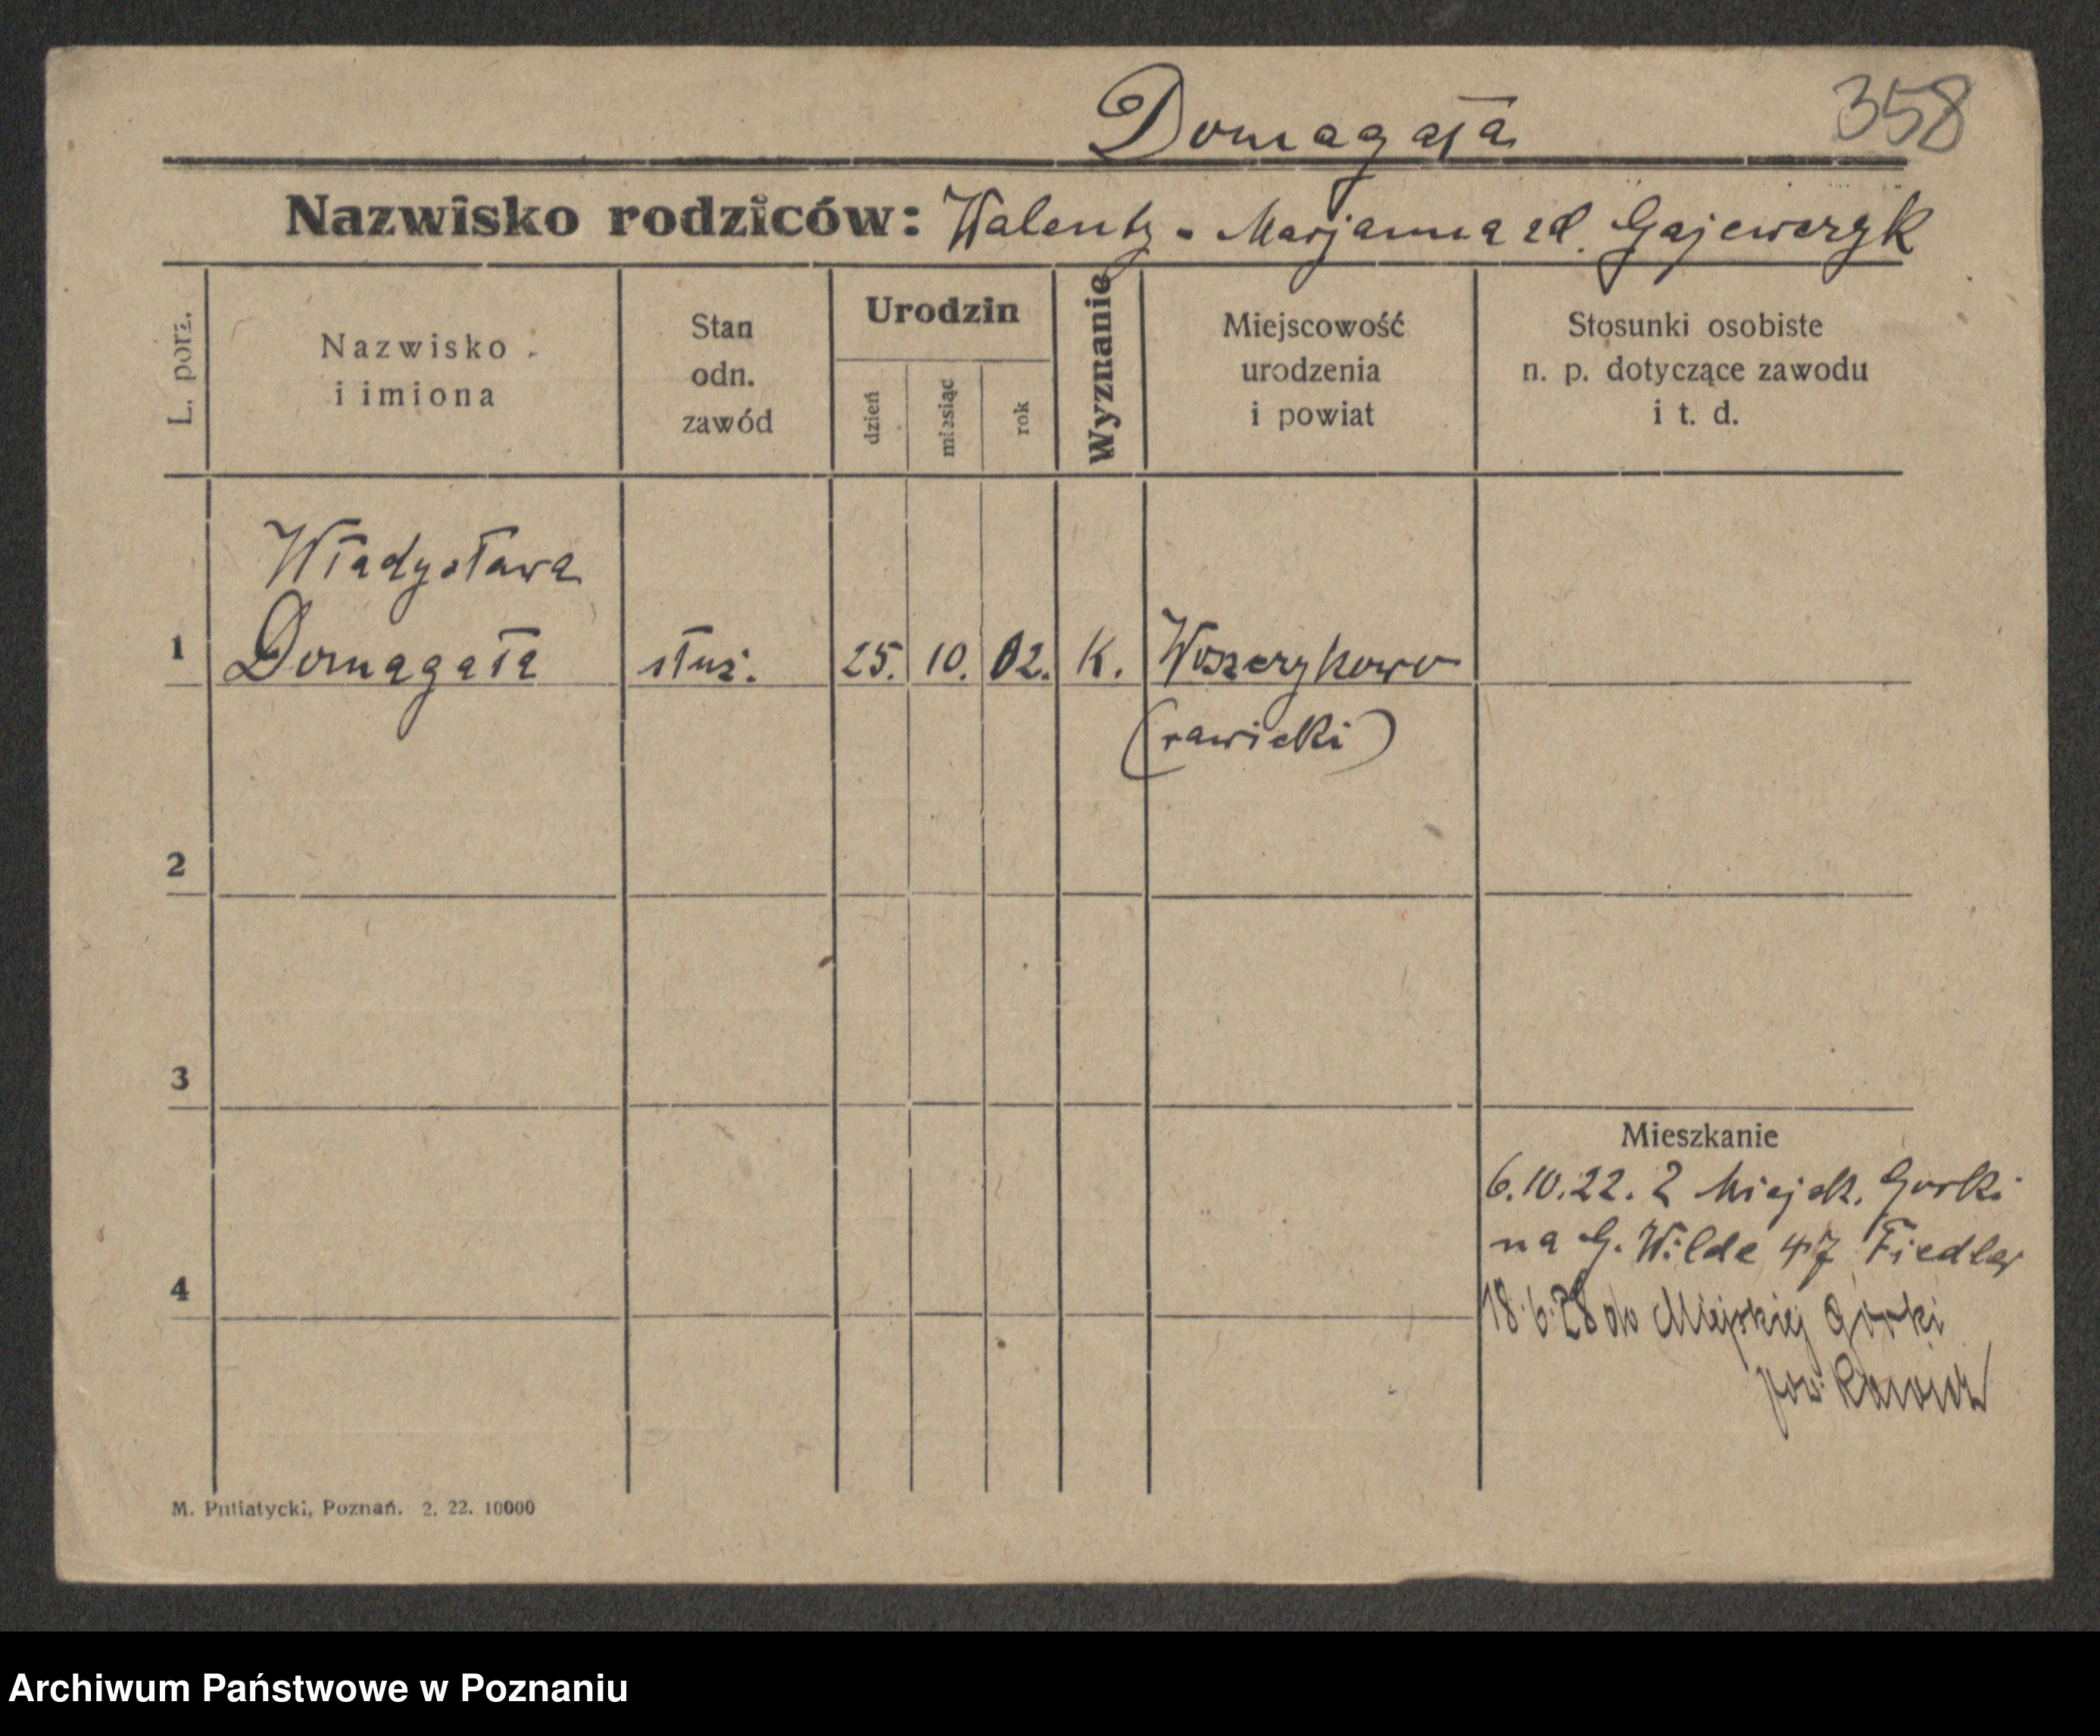 Domagała 358
Nazwisko rodziców: Walenty - Marjanna zd. Gajewczyk
L. porz.
Nazwisko
i imiona
Stan
odn.
zawód
Urodzin
dzień
miesiąc
rok
Wyznanie
Miejscowość
urodzenia
i powiat
Stosunki osobiste
n. p. dotyczące zawodu
i t. d.
Władysława
1 Domagała służ. 25. 10. 02. K. Woszczykowo
(rawicki)
2
3
Mieszkanie
6.10.22. z Miejsk. Gorki
na G. Wilde 47 Fiedler
4
18.6.28 do Miejskiej Górki
pow. Rawicz
M. Putiatycki, Poznań. 2. 22. 10000
Archiwum Państwowe w Poznaniu